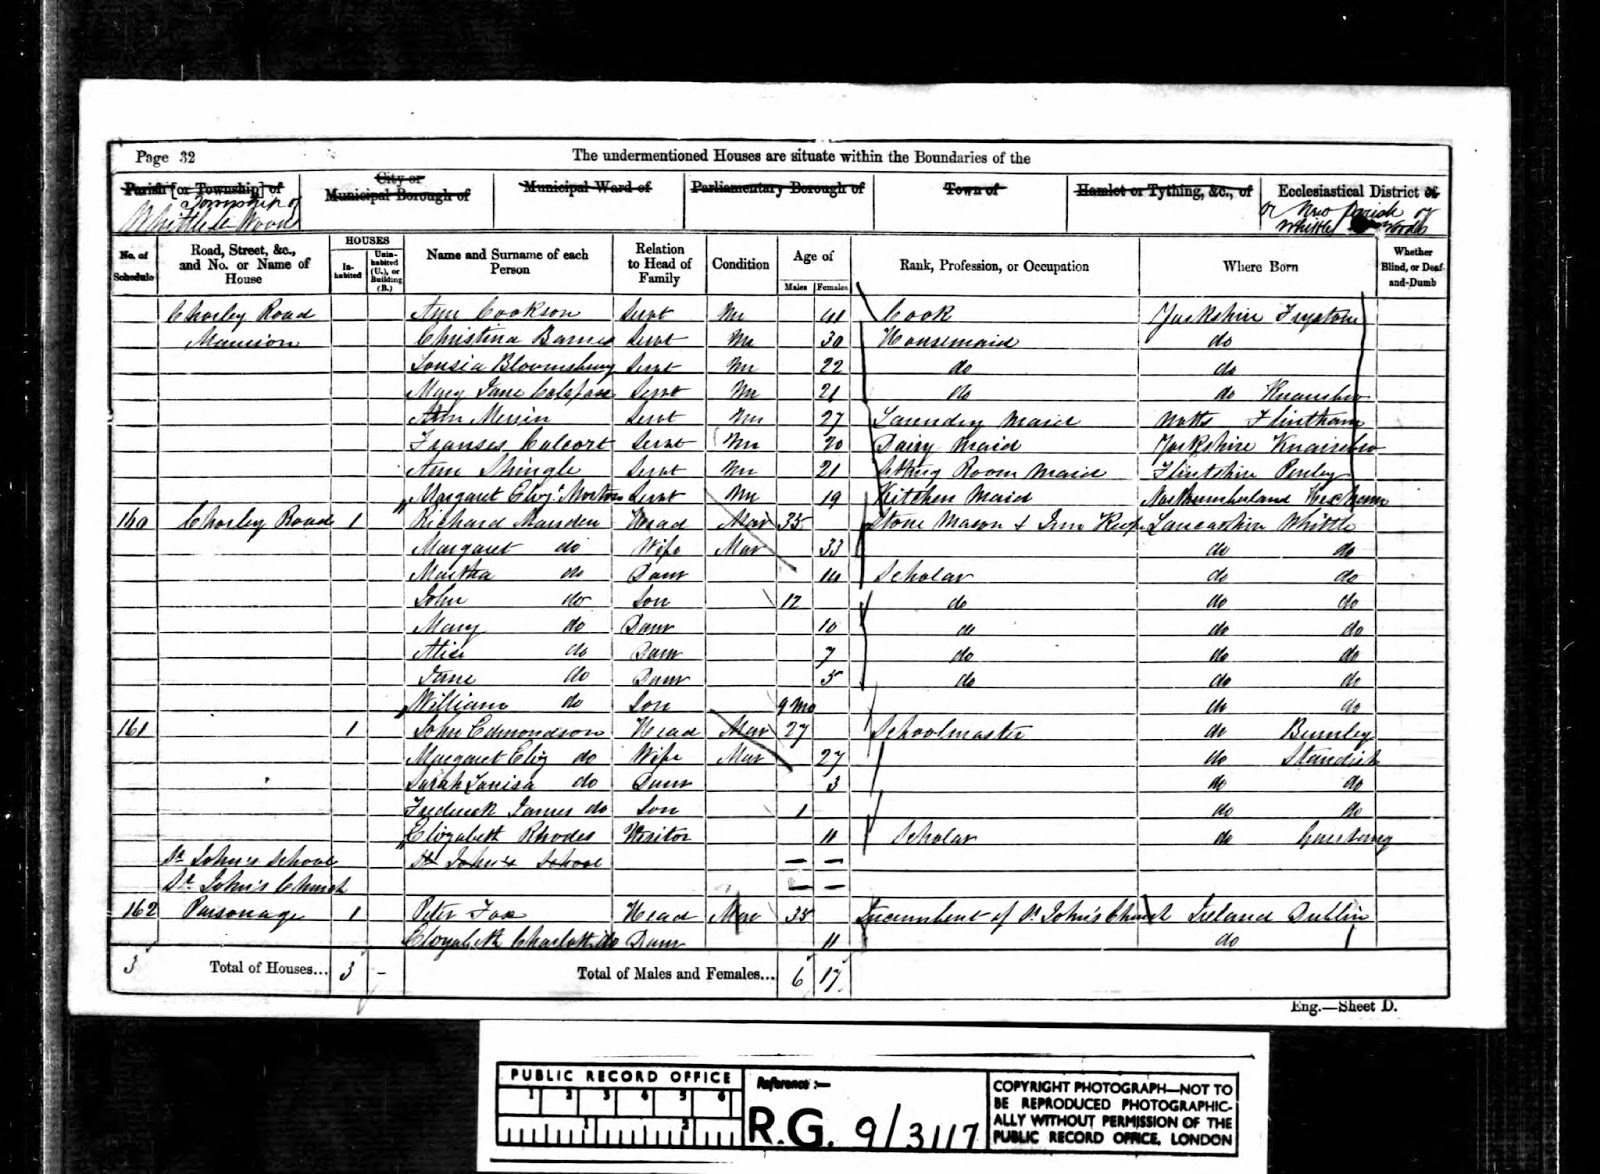 Page 32 The undermentioned Houses are situate within the Boundaries of the
Parish [or Township] of City or Municipal Borough of Municipal Ward of Parliamentary Borough of Town of Hamlet or Tything, &c., of Ecclesiastical District of
Township of Whittle le Woods or New Parish of Whittle Woods
No. of Schedule Road, Street, &c., and No. or Name of House HOUSES Inhabited Uninhabited (U.), or Building (B.) Name and Surname of each Person Relation to Head of Family Condition Age of Males Females Rank, Profession, or Occupation Where Born Whether Blind, or Deaf-and-Dumb
Chorley Road Ann Cookson Servt Un 41 Cook Yorkshire Frystone
Mansion Christina Barnes Servt Un 30 Housemaid do
Louisa Bloomsbury Servt Un 22 do do
Mary Jane Servt Un 21 do do
Ann Servt Un 27 Laundry Maid Notts Flintham
Franses Calcort Servt Un 20 Dairy Maid Yorkshire
Ann Shingle Servt Un 21 Room Maid Flintshire Penley
Margaret Eliz. Servt Un 19 Kitchen Maid Northumberland
160 Chorley Road 1 Richard Marsden Head Mar 35 Stone Mason & Inn Keep Lancashire Whittle
Margaret do Wife Mar 33 do do
Martha do Daur 14 Scholar do do
John do Son 12 do do do
Mary do Daur 10 do do do
Alice do Daur 7 do do do
Jane do Daur 5 do do do
William do Son 9 Mo do do
161 1 John Edmondson Head Mar 27 Schoolmaster do Burnley
Margaret Eliz do Wife Mar 27 do Standish
Sarah Louisa do Daur 3 do do
Frederick James do Son 1 do do
Elizabeth Rhodes Visitor 11 Scholar do
St. John's School St John's School — —
St. John's Church — —
162 Parsonage 1 Peter Fox Head Mar 35 Incumbent of St. John's Church Ireland Dublin
Elizabeth Charlotte do Daur 11 do
3 Total of Houses... 3 - Total of Males and Females... 6 17
Eng.—Sheet D.
PUBLIC RECORD OFFICE
1 2 3 4 5 6
1 2
Reference:-
R.G. 9/3117
COPYRIGHT PHOTOGRAPH—NOT TO
BE REPRODUCED PHOTOGRAPHIC-
ALLY WITHOUT PERMISSION OF THE
PUBLIC RECORD OFFICE, LONDON